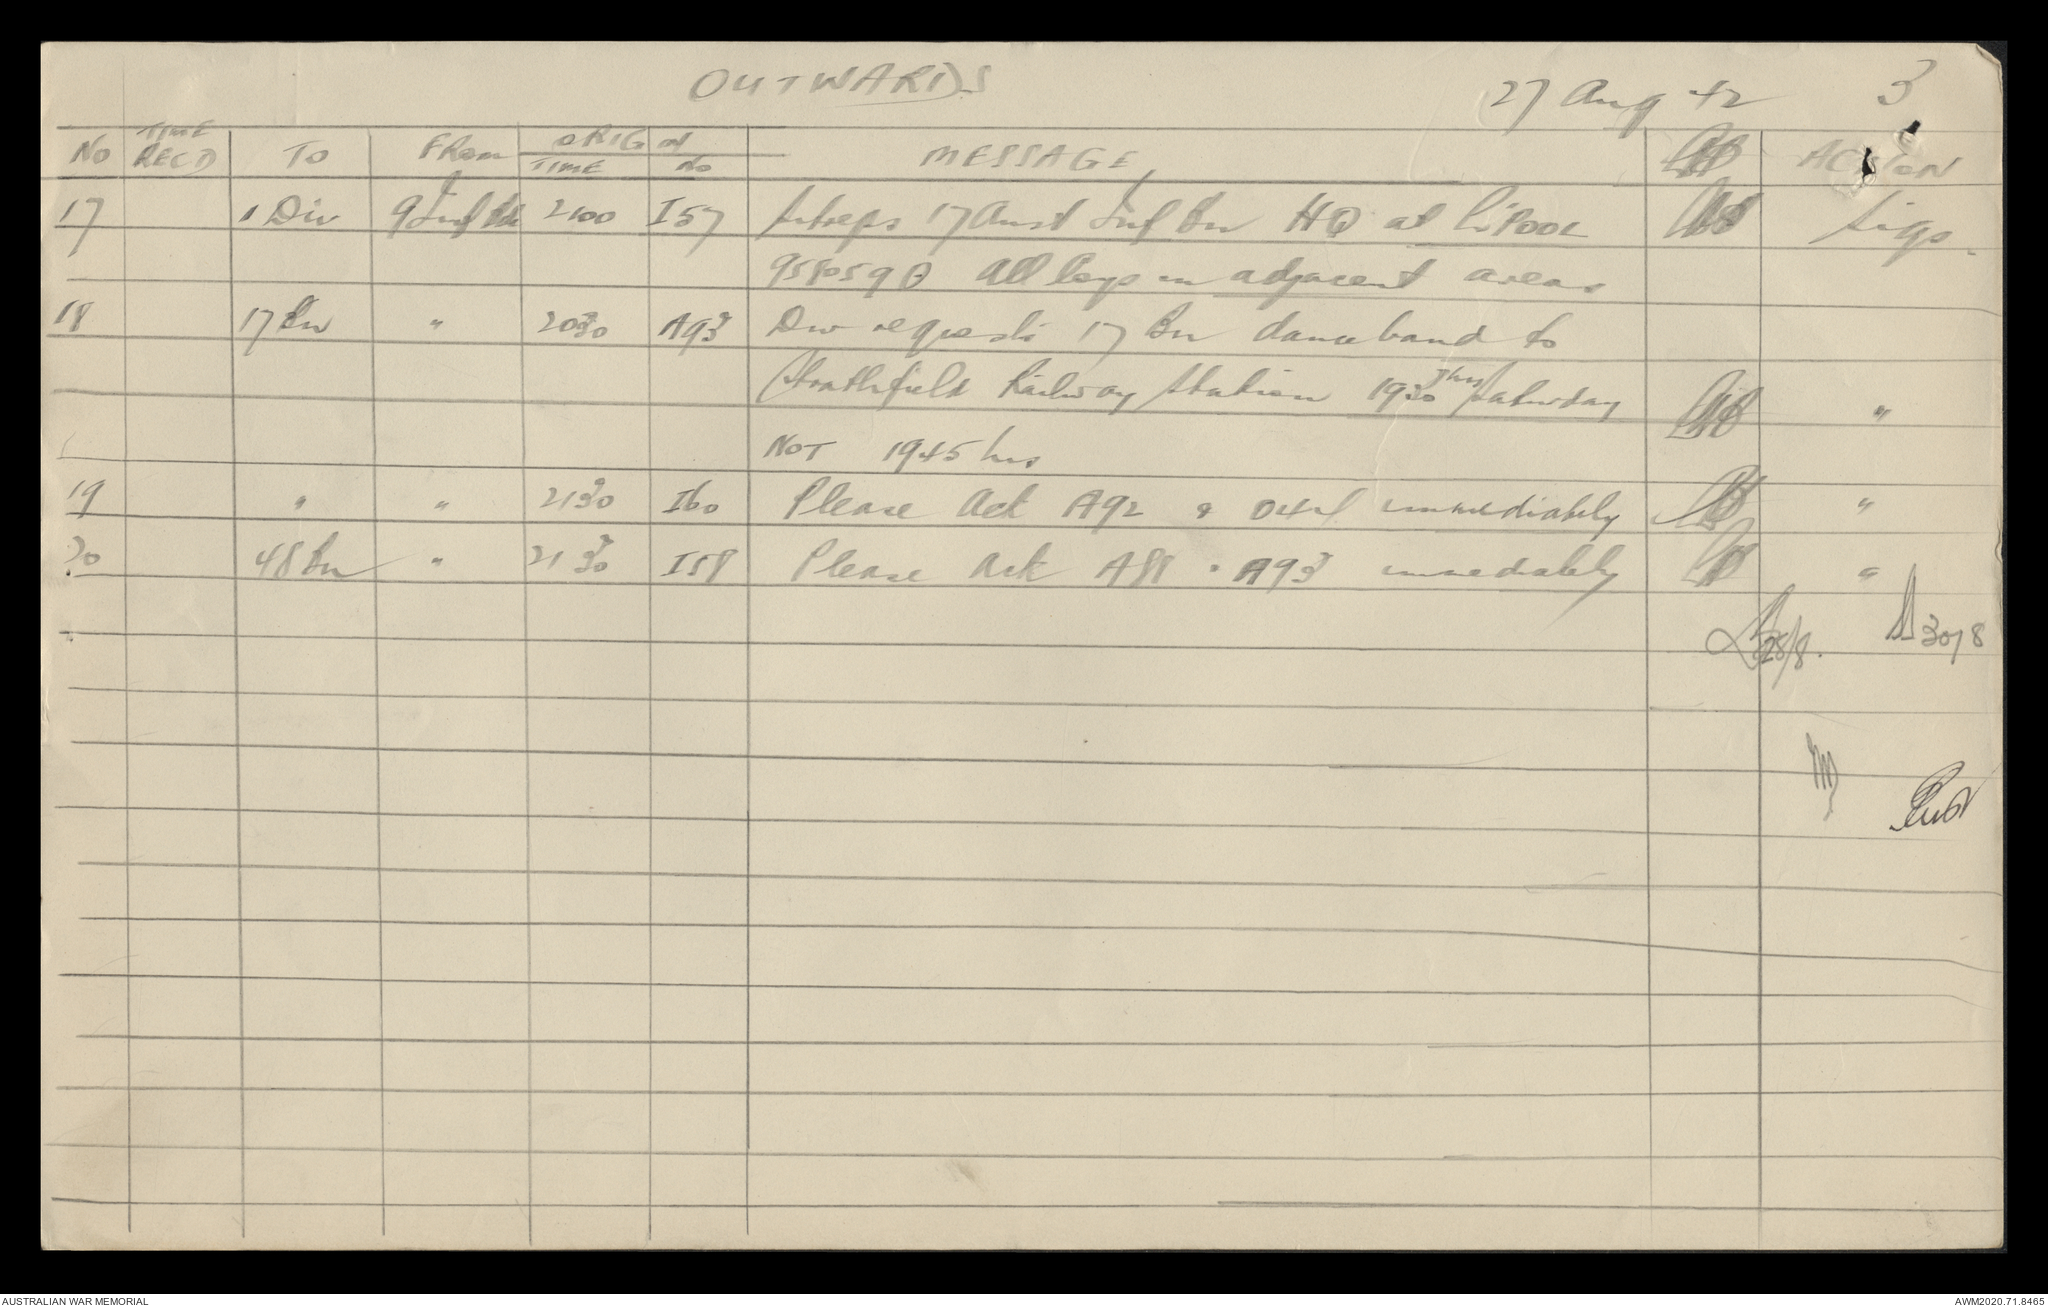 OUTWARDS
27 Aug 42 3
No TIME RECD TO FROM ORIG TIME No MESSAGE ACTION
17 1 Div 9 Inf Bde 2100 I57 17 Aust Inf Bn HQ at L'POOL Sigs.
958059 All Coys in adjacent areas
18 17 Bn " 2030 A93 Div requests 17 Bn dance band to
Strathfield Railway Station 1930 hrs Saturday "
NOT 1945 hrs
19 " " 2130 I60 Please Ack A92 & immediately "
20 48 Bn " 2130 I58 Please Ack A88 A93 immediately "
28/8. 30/8
AUSTRALIAN WAR MEMORIAL AWM2020.71.8465